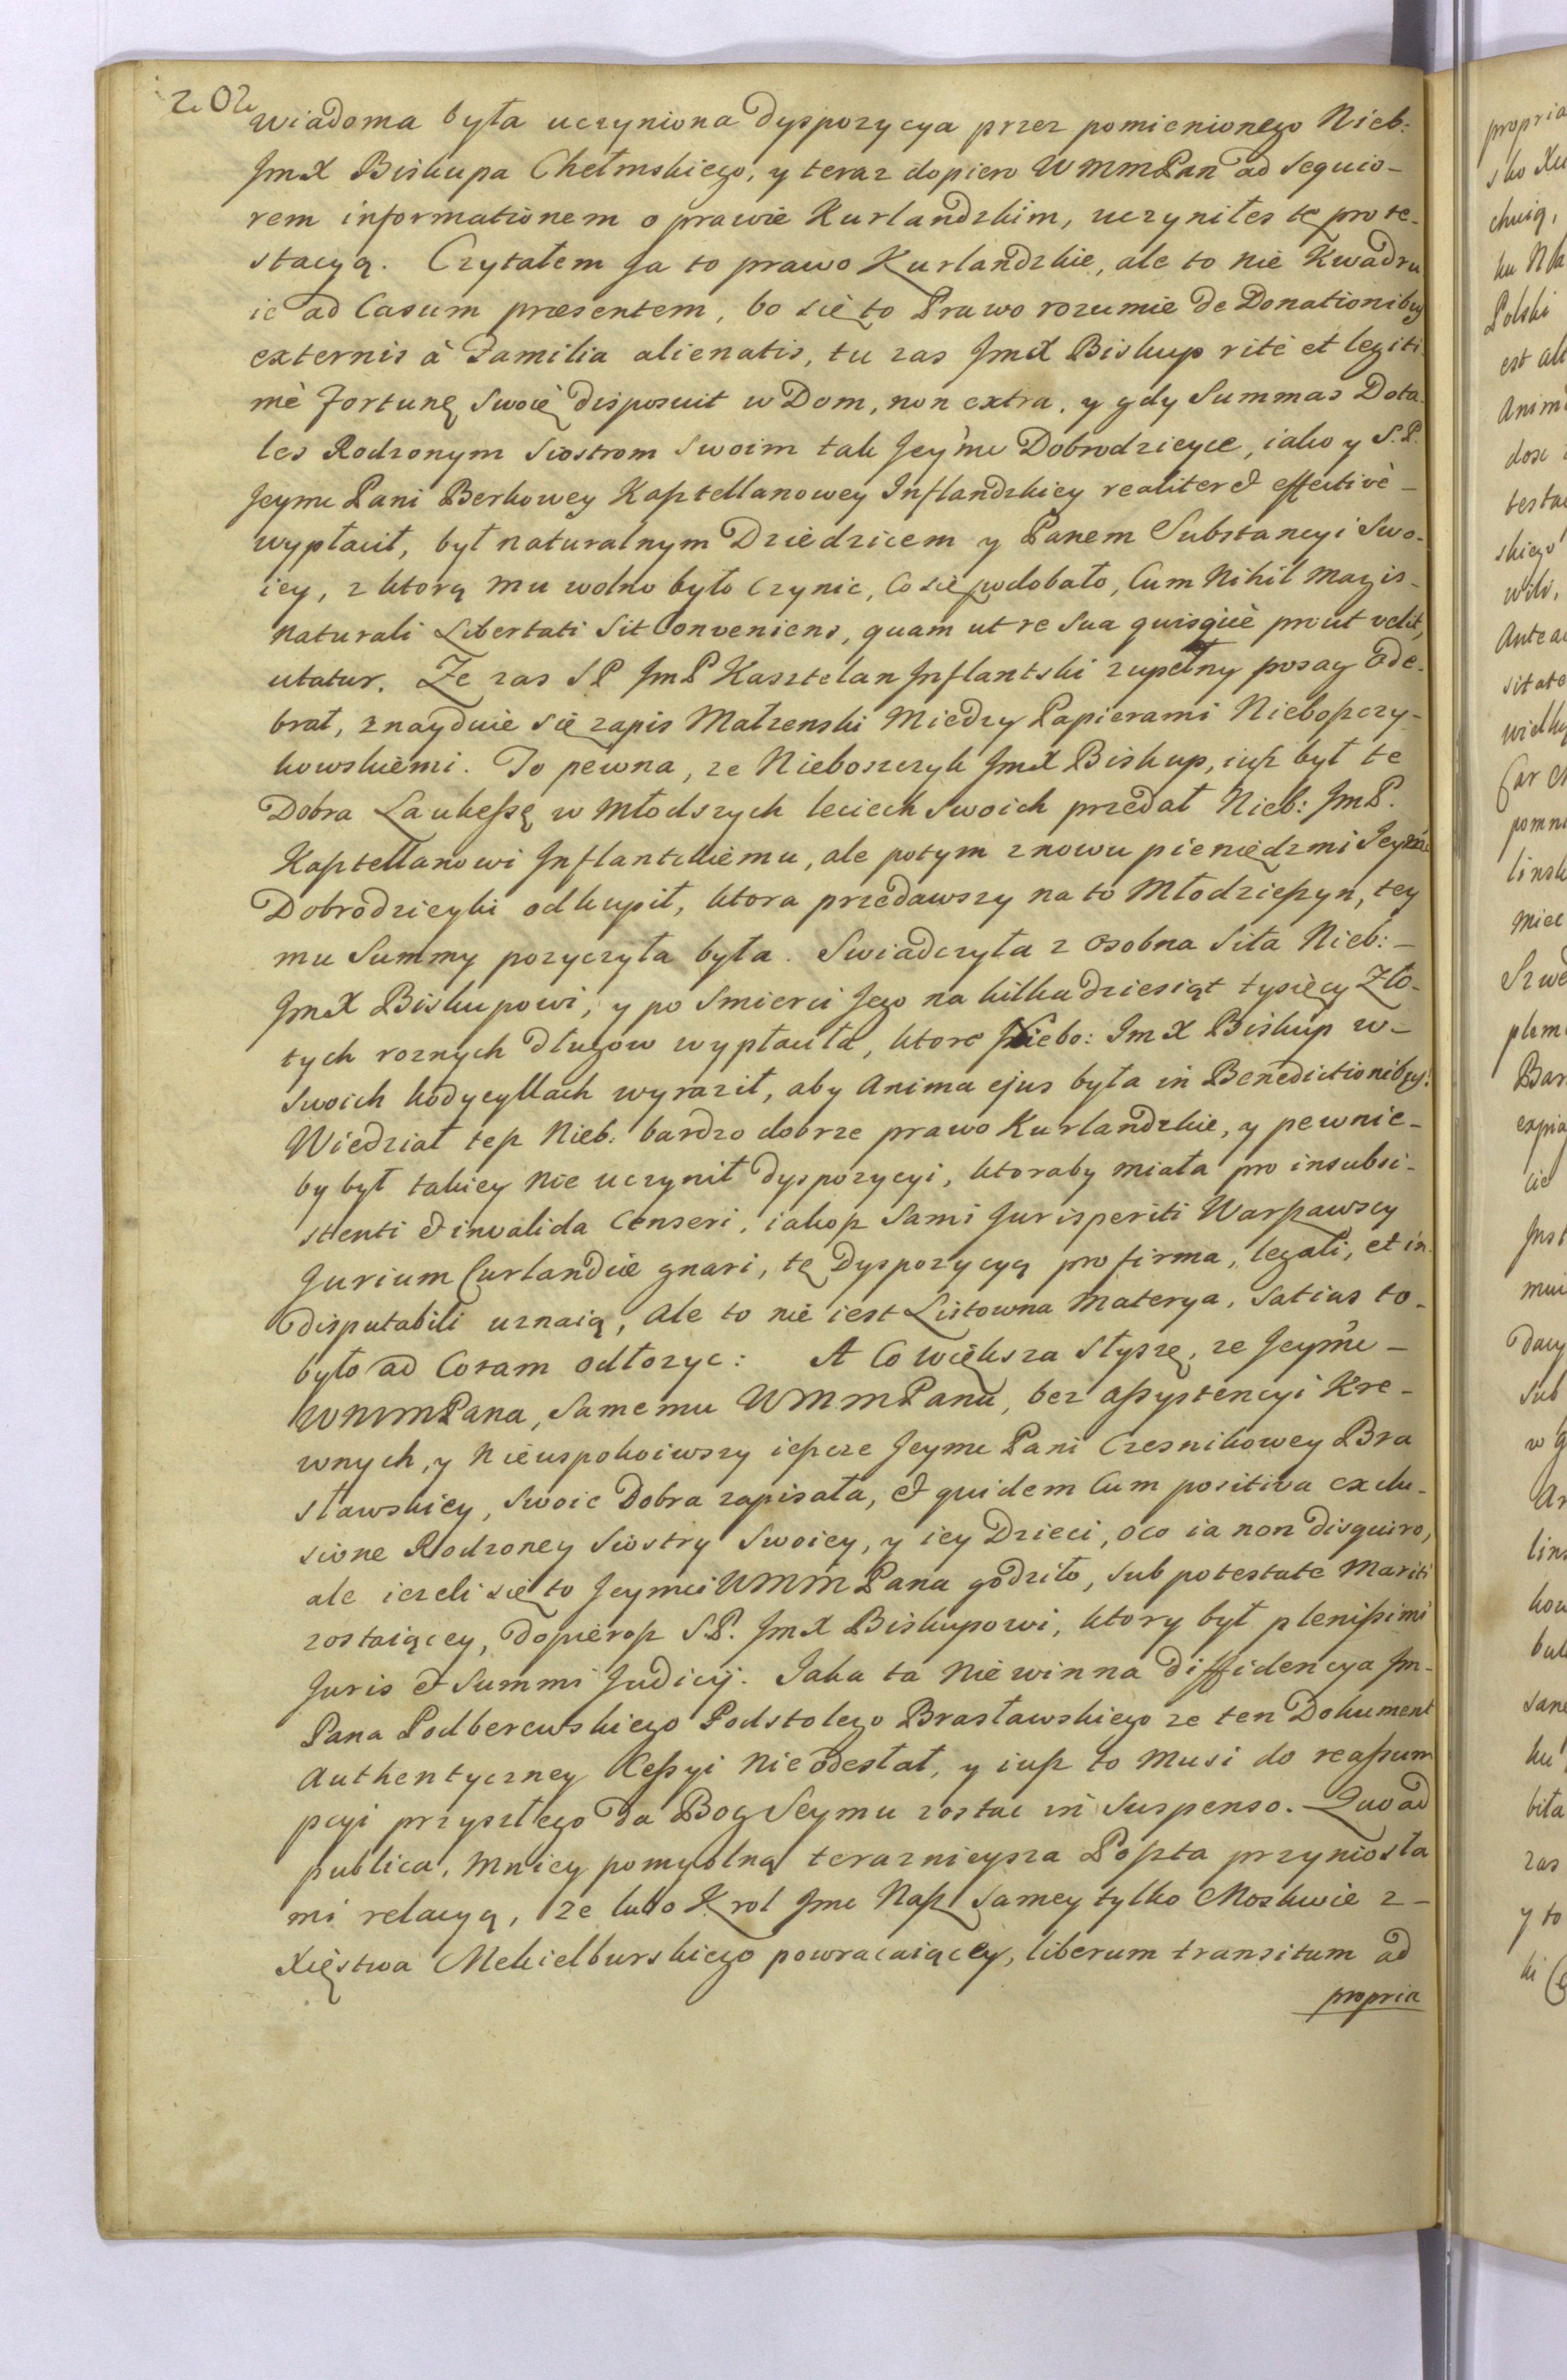 202
wiadoma była uczyniona dyspozycya przez pomienionego Nieb:
JmX Biskupa Chełmskiego, y teraz dopiero WMMPan ad sequio-
rem informationem o prawie Kurlandzkim, uczyniłes tę prote-
stacyą. Czytałem Ja to prawo Kurlandzkie, ale to nie Kwadru
ie ad Casum præsentem, bo się to Prawo rozumie de Donationibus
externis à Familia alienatis, tu zas JmX Biskup ritè et legiti
mè Fortunę Swoię disposuit w Dom, non extra, y gdy Summas Dota-
les Rodzonym Siostrom Swoim tak Jeymc Dobrodzieyce, iako y S.P.
Jeymc Pani Berkowey Kasztellanowey Inflandzkiey realiter & effectivè -
wypłacił, był naturalnym Dziedzicem y Panem Substancyi Swo-
iey, z ktorą mu wolno było czynic, Co się podobało, Cum Nihil magis -
naturali Libertati Sit Conveniens, quam ut re Sua quisquè prout velit,
utatur. Ze zas SP JmP Kasztelan Inflantski zupełny posag ode-
brał, znayduie się zapis Małzenski Między Papierami Nieboszczy-
kowskiemi. To pewna, ze Nieboszczyk JmX Biskup, iusz był te
Dobra Laukeszę w Młodszych leciech Swoich przedał Nieb: JmP.
Kasztellanowi Inflantckiemu, ale potym znowu pieniędzmi Jeymć
Dobrodzieyki odkupił, ktora przedawszy na to Młodzieszyn, tey
mu Summy pozyczyła była. Swiadczyła z osobna Siła Nieb: -
JmX Biskupowi, y po Smierci Jego na kilkadziesiąt tysięcy Zło-
tych roznych długow wypłaciła, ktore Niebo: JmX Biskup w -
Swoich kodycyllach wyraził, aby Anima ejus była in Benedictionibus.
Wiedział tesz Nieb: bardzo dobrze prawo Kurlandzkie, y pewnie -
by był takiey Nie uczynił dyspozycyi, ktoraby miała pro insubsi-
stenti & invalida Censeri, iakosz Sami Jurisperiti Warszawscy
Jurium Curlandiæ gnari, tę Dyspozycyą pro firma, legali, et in
disputabili uznaią, Ale to nie iest Listowna Materya, Satius to -
było ad Coram odłozyc: A Co większa Słyszę, ze Jeymc -
WMMPana, Samemu WMMPanu, bez assystencyi Kre-
wnych, y Nieuspokoiwszy ieszcze Jeymc Pani Czesnikowey Bra
sławskiey, Swoie Dobra zapisała, & quidem Cum positiva exclu-
sione Rodzoney Siostry Swoiey, y iey Dzieci, oco ia non disquiro,
ale iezeli się to Jeymci WMMPana godziło, Sub potestate Mariti
zostaiącey, dopierosz S.P. JmX Biskupowi, ktory był plenissimi
Juris & Summi Judicij. Jaka ta Niewinna diffidencya Jm-
Pana Podberewskiego Podstolego Brasławskiego ze ten Dokument
Authentyczney Cessyi Nieodesłał, y iusz to Musi do reassum
pcyi przyszłego da Bog Seymu zostac in Suspenso. Quoad
publica, Mniey pomyslną teraznieysza Poszta przyniosła
mi relacyą, ze lubo Krol Jmc Nasz Samey tylko Moskwie z -
Xięstwa Mekielburskiego powracaiącey, liberum transitum ad
propria